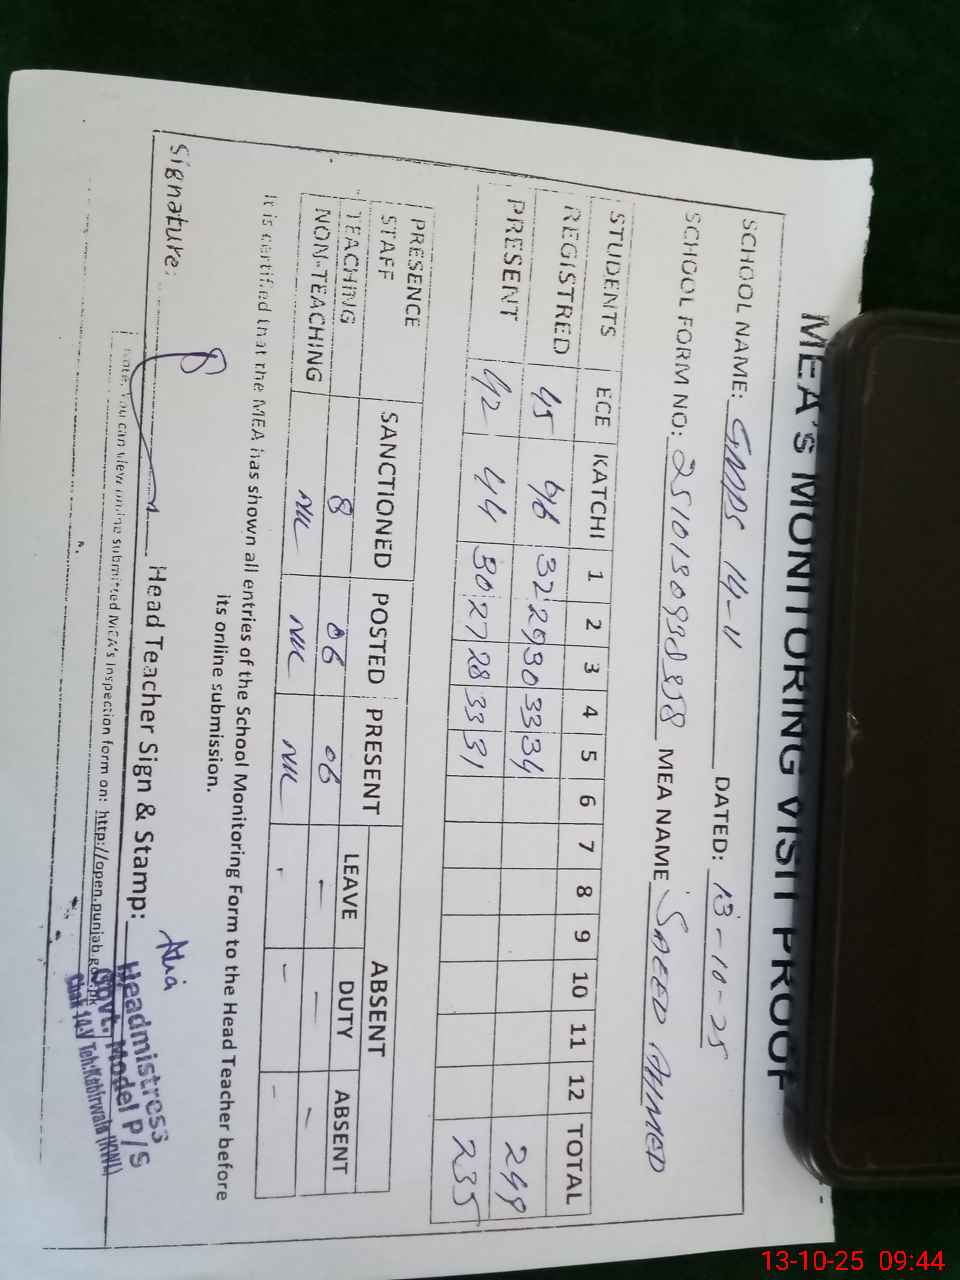 MEA'S MONITORING VISIT PROOF
SCHOOL NAME: GMPS 14-V DATED: 13-10-25
SCHOOL FORM NO: MEA NAME SAEED AHMED
STUDENTS ECE KATCHI 1 2 3 4 5 6 7 8 9 10 11 12 TOTAL
REGISTRED 45 46 32 29 30 33 34 249
PRESENT 42 44 30 27 28 33 31 235
PRESENCE SANCTIONED POSTED PRESENT ABSENT
STAFF LEAVE DUTY ABSENT
TEACHING 8 06 06 - - -
NON-TEACHING NIL NIL NIL - - -
It is certified that the MEA has shown all entries of the School Monitoring Form to the Head Teacher before
its online submission.
Signature: Head Teacher Sign & Stamp:
Headmistress
Govt. Model P/S
Chak 14-V Teh:Kabirwala (KWL)
Note: You can view online submitted MEA's Inspection form on: http://open.punjab.gov.pk
13-10-25 09:44